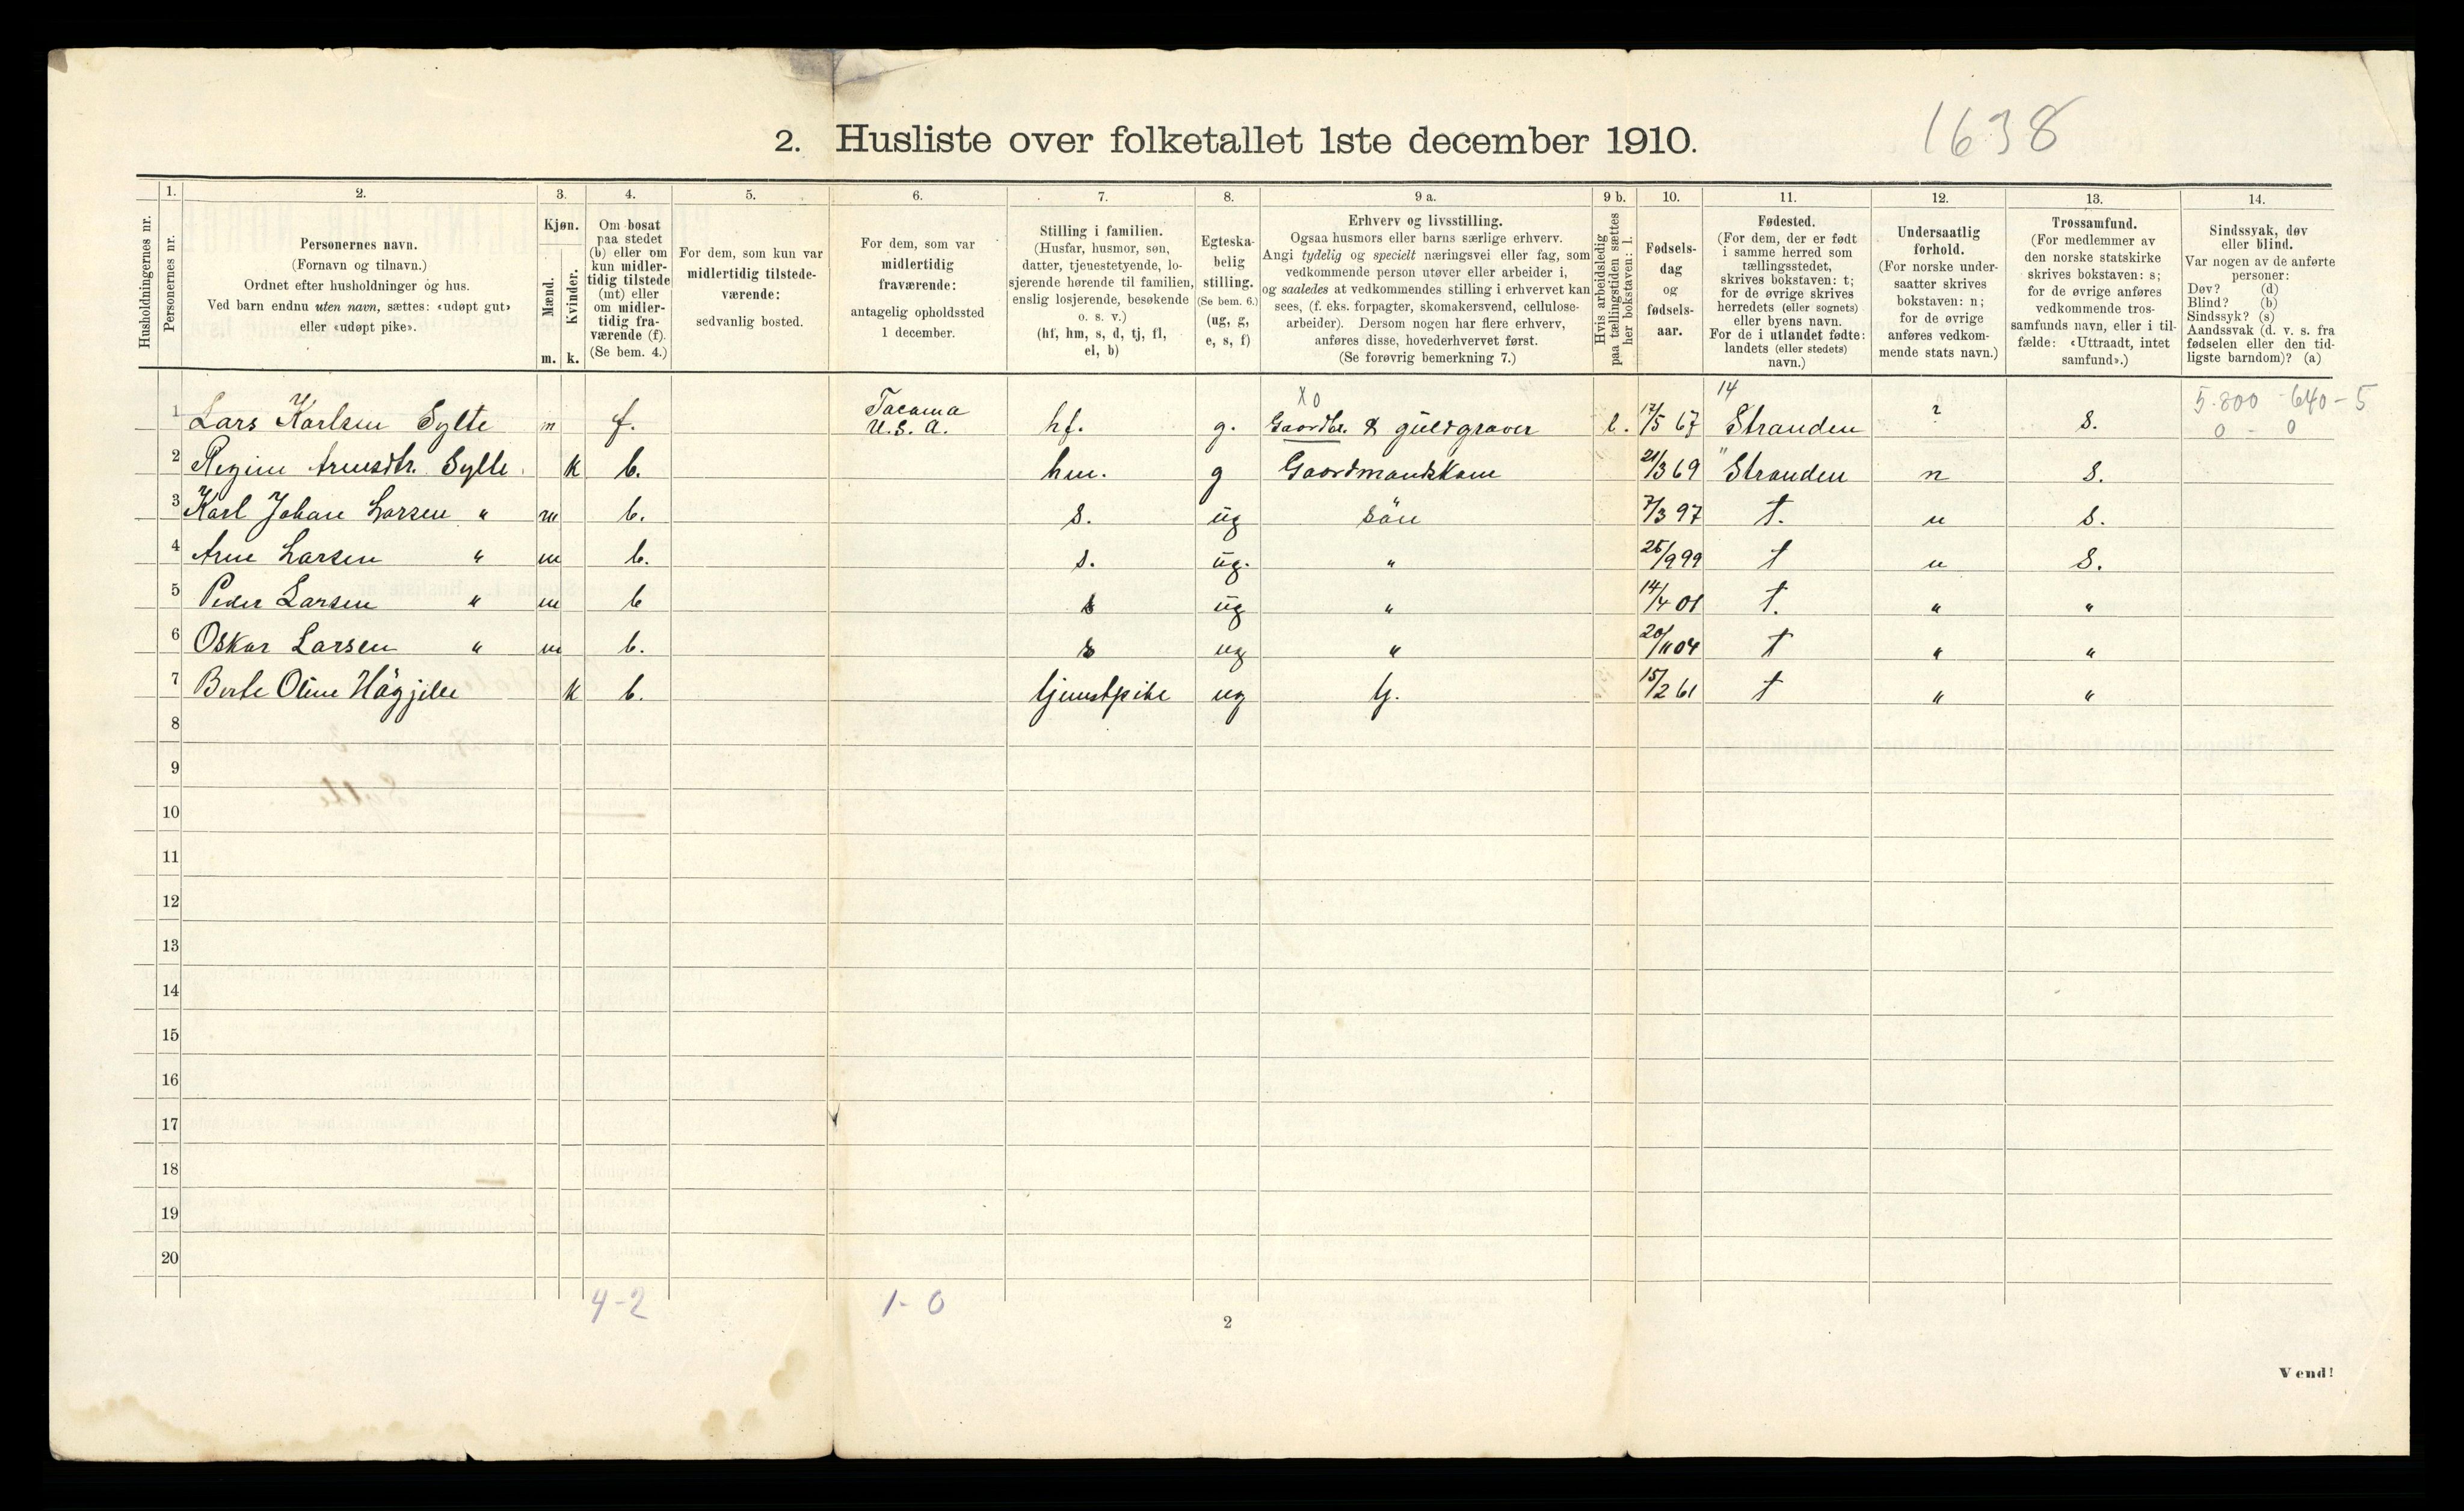 1638
2. Husliste over folketallet 1ste december 1910.
Husholdningernes nr.
1.
Personernes nr.
2.
Personernes navn.
(Fornavn og tilnavn.)
Ordnet efter husholdninger og hus.
Ved barn endnu uten navn, sættes: «udøpt gut»
eller «udøpt pike».
3.
Kjøn.
Mænd.
Kvinder.
m. k.
4.
Om bosat
paa stedet
(b) eller om
kun midler-
tidig tilstede
(mt) eller
om midler-
tidig fra-
værende (f).
(Se bem. 4.)
5.
For dem, som kun var
midlertidig tilstede-
værende:
sedvanlig bosted.
6.
For dem, som var
midlertidig
fraværende:
antagelig opholdssted
1 december.
7.
Stilling i familien.
(Husfar, husmor, søn,
datter, tjenestetyende, lo-
sjerende hørende til familien,
enslig losjerende, besøkende
o. s. v.)
(hf, hm, s, d, tj, fl,
el, b)
8.
Egteska-
belig
stilling.
(Se bem. 6.)
(ug, g,
e, s, f)
9 a.
Erhverv og livsstilling.
Ogsaa husmors eller barns særlige erhverv.
Angi tydelig og specielt næringsvei eller fag, som
vedkommende person utøver eller arbeider i,
og saaledes at vedkommendes stilling i erhvervet kan
sees, (f. eks. forpagter, skomakersvend, cellulose-
arbeider). Dersom nogen har flere erhverv,
anføres disse, hovederhvervet først.
(Se forøvrig bemerkning 7.)
9 b.
Hvis arbeidsledig
paa tællingstiden sættes
her bokstaven: l.
10.
Fødsels-
dag
og
fødsels-
aar.
11.
Fødested.
(For dem, der er født
i samme herred som
tællingsstedet,
skrives bokstaven: t;
for de øvrige skrives
herredets (eller sognets)
eller byens navn.
For de i utlandet fødte:
landets (eller stedets)
navn.)
12.
Undersaatlig
forhold.
(For norske under-
saatter skrives
bokstaven: n;
for de øvrige
anføres vedkom-
mende stats navn.)
13.
Trossamfund.
(For medlemmer av
den norske statskirke
skrives bokstaven: s;
for de øvrige anføres
vedkommende tros-
samfunds navn, eller i til-
fælde: «Uttraadt, intet
samfund».)
14.
Sindssvak, døv
eller blind.
Var nogen av de anførte
personer:
Døv? (d)
Blind? (b)
Sindssyk? (s)
Aandssvak (d. v. s. fra
fødselen eller den tid-
ligste barndom)? (a)
X0 14 5.800 - 640 - 5
1 Lars Karlsen Sylte m f. Tacoma U.S.A. hf. g. Gaardbr. & guldgraver l. 17/5 67 Stranden ? s. 0 - 0
2 Regine Arnesdtr. Sylte k b. hm. g Gaardmandskone 21/3 69 " Stranden n s.
3 Karl Johan Larsen " m b. s. ug sön 7/3 97 t. n s.
4 Arne Larsen " m b. s. ug. " 25/9 99 t n s.
5 Peder Larsen " m b s ug " 14/4 01 t. " "
6 Oskar Larsen " m b. s ug " 20/11 04 t " "
7 Berte Oline k b. tjenestpike ug tj. 15/2 61 t " "
8
9
10
11
12
13
14
15
16
17
18
19
20
4-2 1-0
2
Vend!